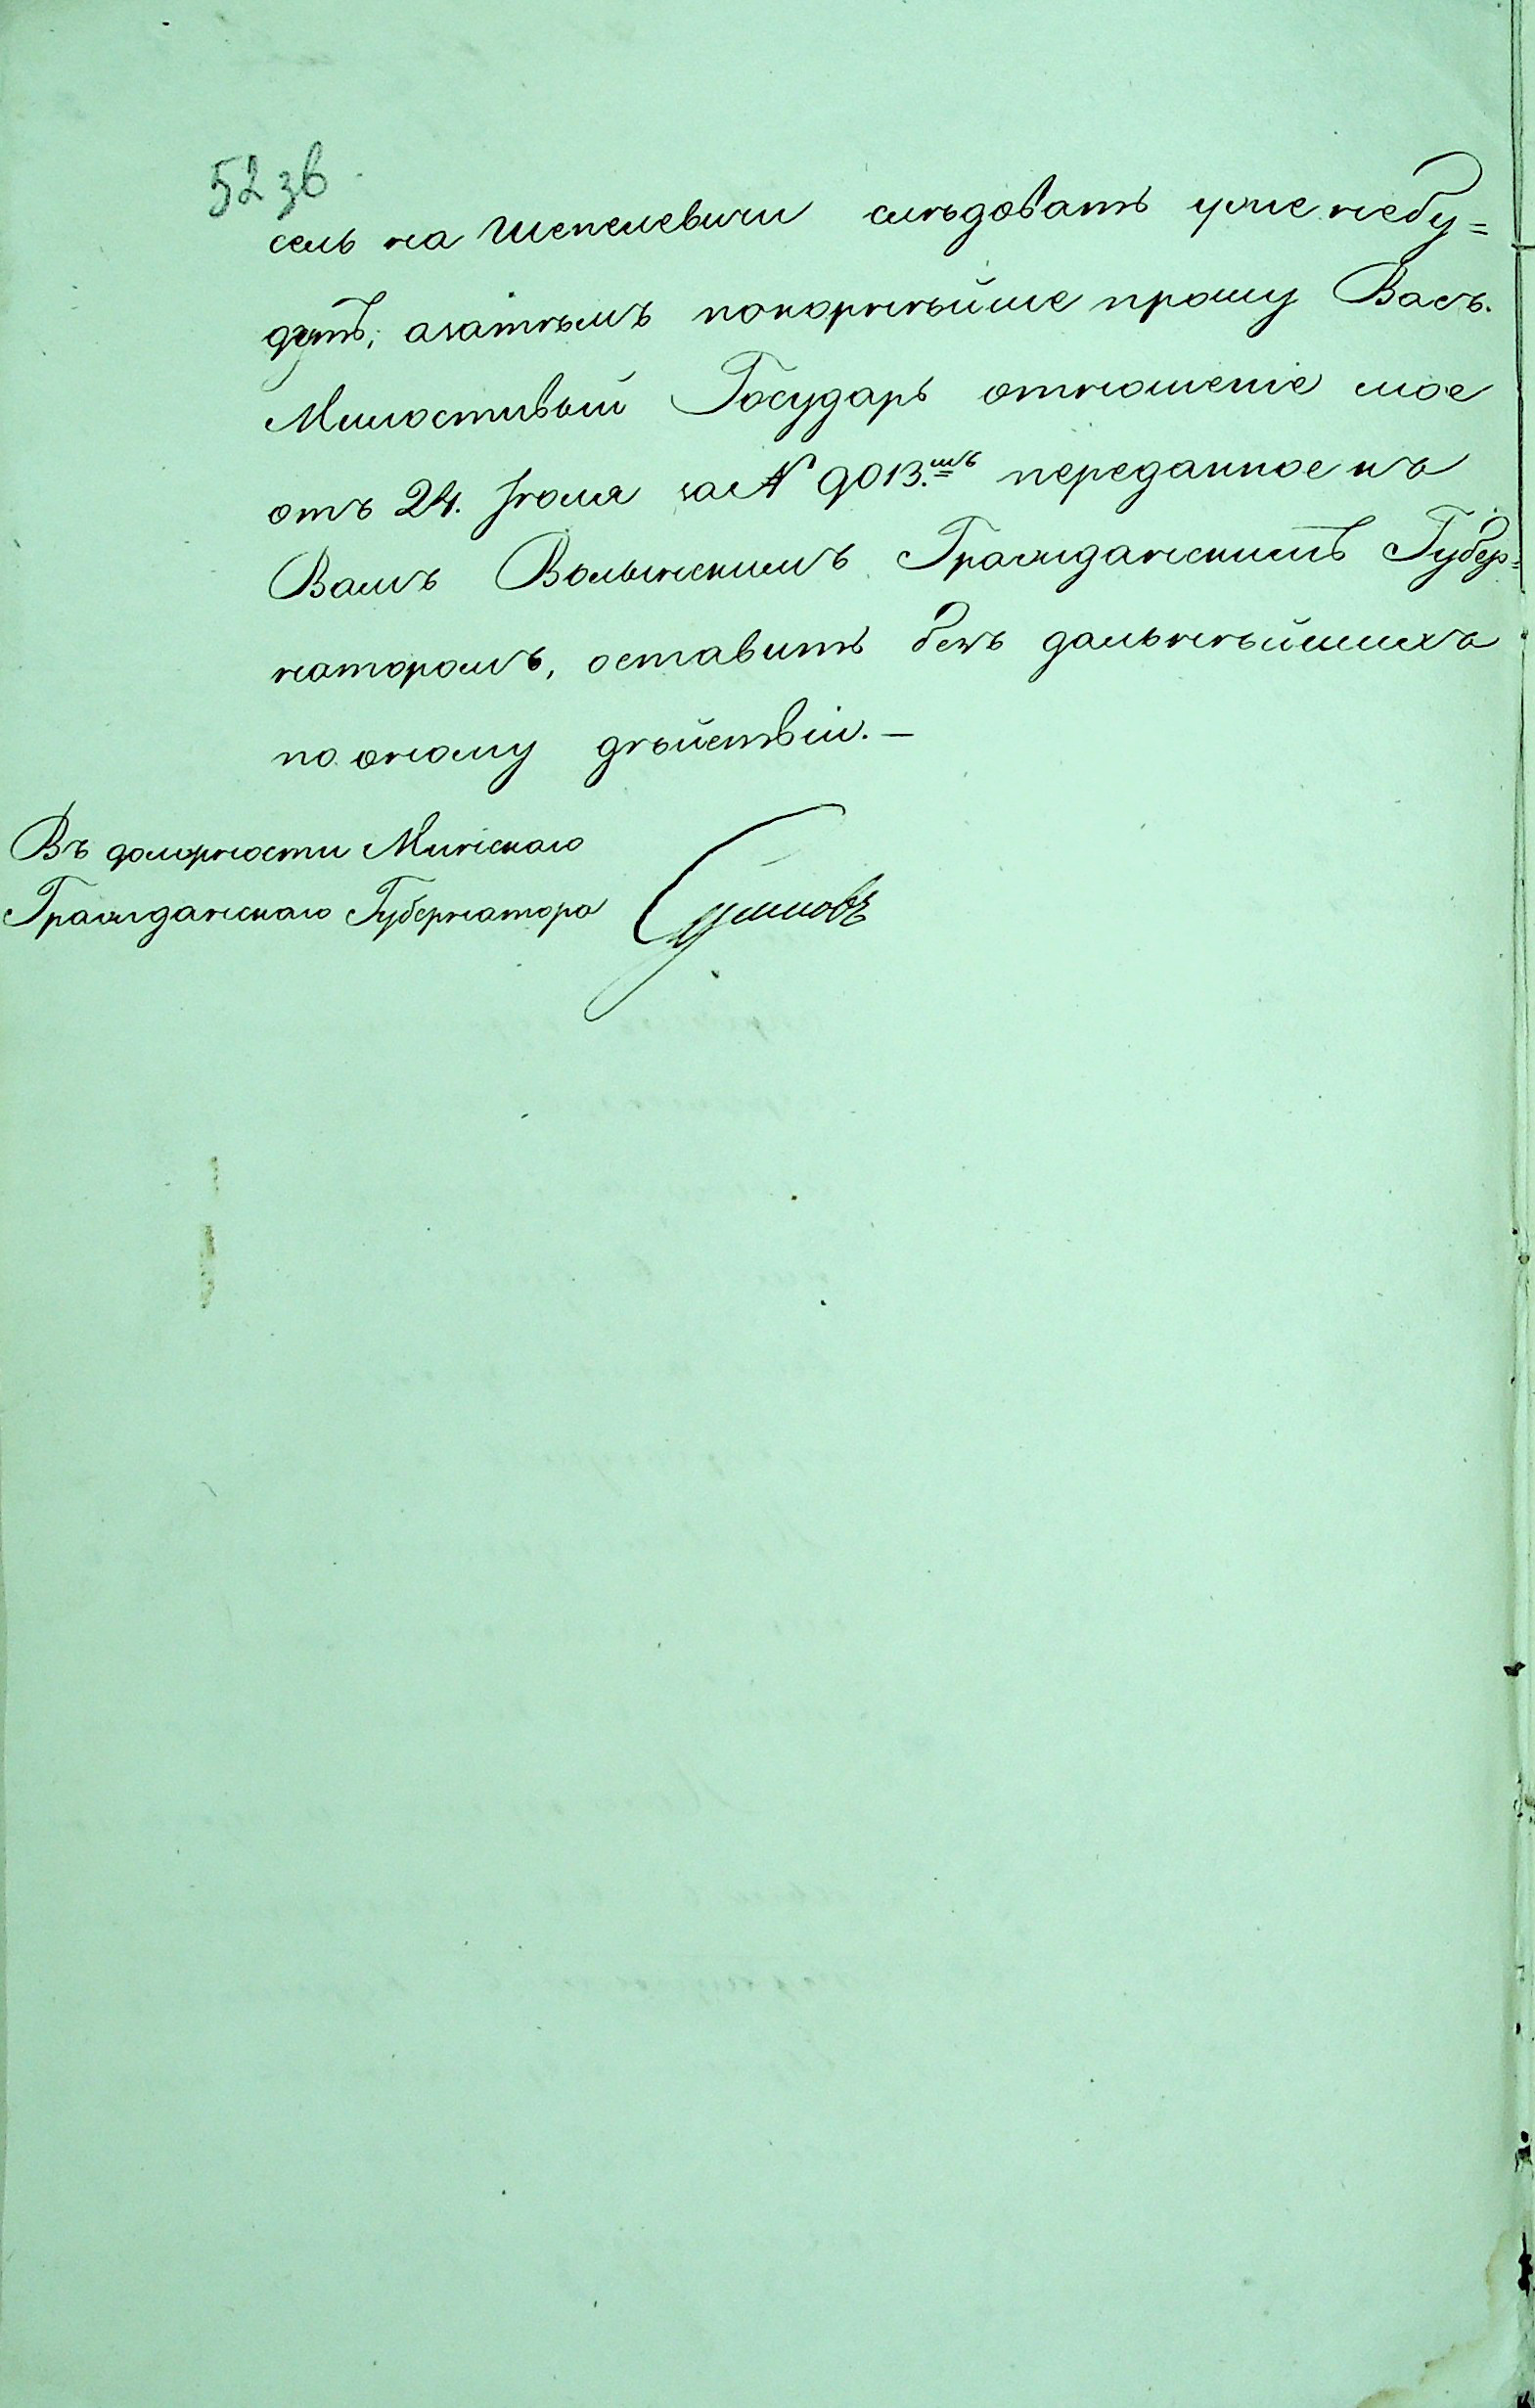 52 зв.
сель на Шепелевичи слѣдовать уже небу=
дутъ; азатѣмъ покорнѣйше прошу Васъ.
Милостивый Государь отношеніе мое
отъ 24. Іюля за № 9013.мъ переданное къ
Вамъ Волынскимъ Гражданскимъ Губер=
наторомъ, оставить безъ дальнѣйшихъ
по оному дѣйствій.—
Въ должности Минскаго
Гражданскаго Губернатора